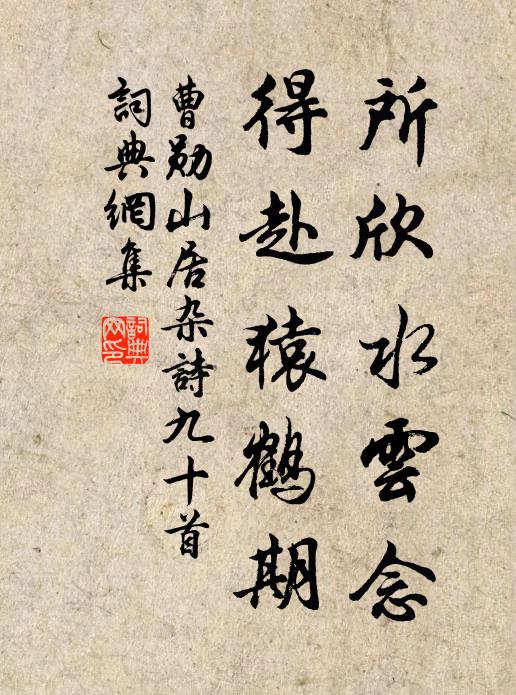 所欣水雲念
得赴猿鶴期
曹勛山居杂詩九十首
詞典網集
詞典網印